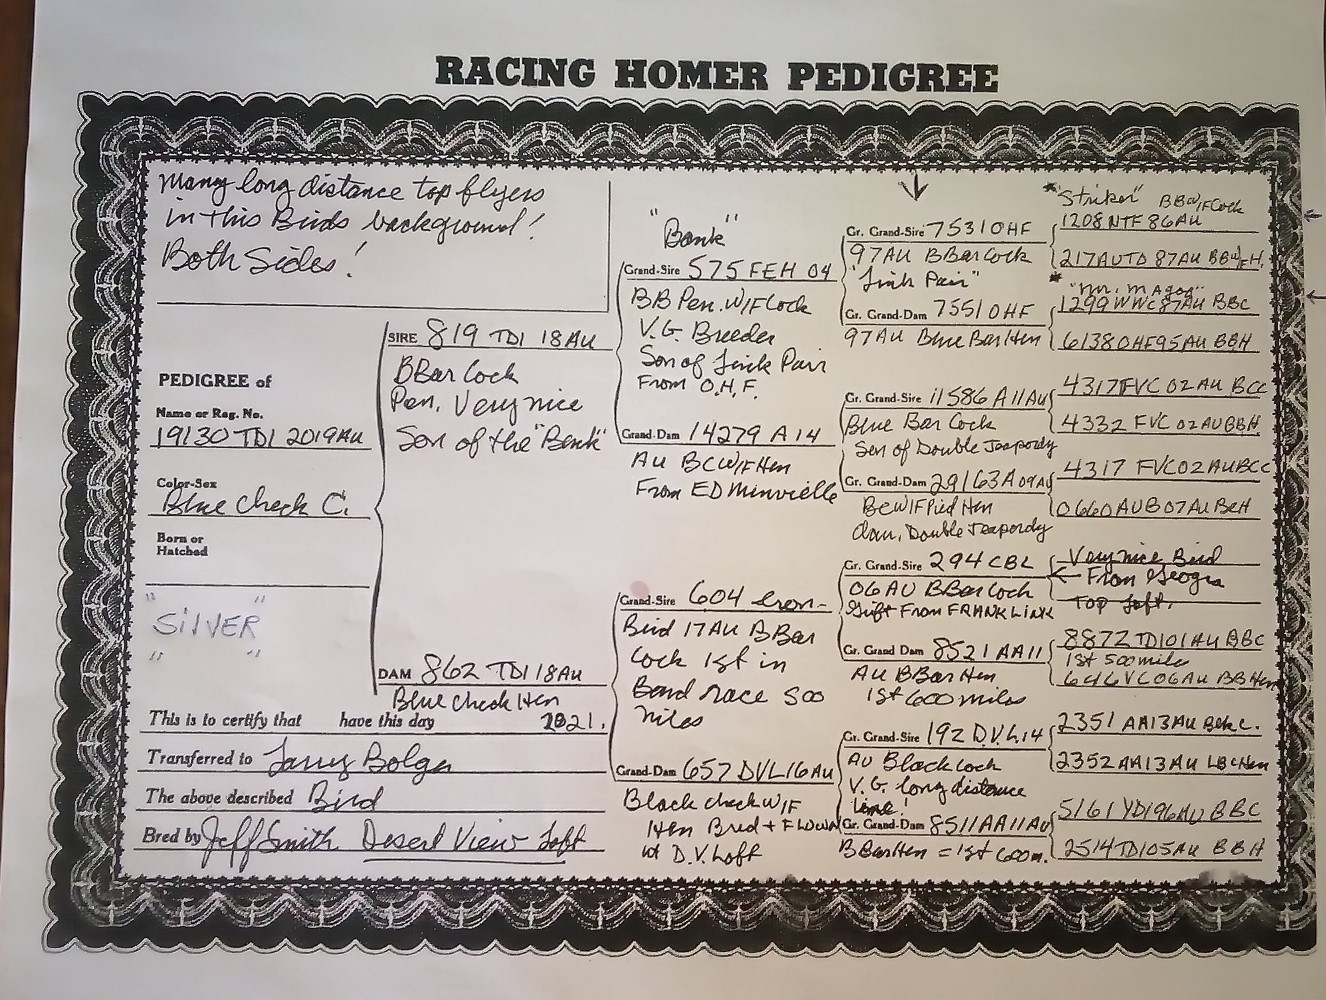 RACING HOMER PEDIGREE
Many long distance top flyers
in this Birds background!
Both Sides!
PEDIGREE of
Name or Reg. No.
19130 TDI 2019AU
Color-Sex
Blue Check C.
Born or
Hatched
"SilVER"
This is to certify that have this day 2021.
Transferred to Larry Bolger
The above described Bird
Bred by Jeff Smith Desert View Loft
SIRE 819 TDI 18AU
BBar Cock
Pen. Very nice
Son of the "Bank"
DAM 862 TDI 18AU
Blue check Hen
"Bank"
Grand-Sire 575 FEH 04
BB Pen. W/F Cock
V.G. Breeder
Son of Link Pair
From O.H.F.
Grand-Dam 14279 A 14
AU BCW/F Hen
From ED Minvielle
Grand-Sire 604 Iron-
Bird 17AU BBar
Cock 1st in
Band race 500
miles
Grand-Dam 657 DVL16AU
Black check W/F
Hen Bred + FLOWN
at D.V. Loft
Gr. Grand-Sire 7531 OHF
97AU BBar Cock
"Link Pair"
Gr. Grand-Dam 7551 OHF
97AU Blue Bar Hen
Gr. Grand-Sire 11586 A11AU
Blue Bar Cock
Son of Double Jeapordy
Gr. Grand-Dam 29163A09AU
BCW/F Pied Hen
dam, Double Jeapordy
Gr. Grand-Sire 294 CBL
06 AU BBar Cock
Gift From FRANK LINK
Gr. Grand Dam 8521 AA11
AU BBar Hen
1st 600 miles
Gr. Grand-Sire 192 D.V.L.14
AU Black Cock
V.G. long distance
Line!
Gr. Grand-Dam 8511AA11AU
BBar Hen = 1st 600m.
"Striker" BBW/F Cock
1208 NTF 86AU
217AUTO 87AU BBW/FH.
1299WWC87AU BBC
6138OHF95AU BBH
4317FVC 02 AU BCC
4332 FVC 02AUBBH
4317 FVC02AUBCC
0660AUB07AU BCH
Very nice Bird
From Georgia
Top Loft.
8872TDI01AU BBC
1st 500 miles
646VC06AU BB Hen
2351 AA13AU Blk C.
2352 AA13AU LBC Hen
5161 YDI96AU BBC
2514TDI05AU BBH